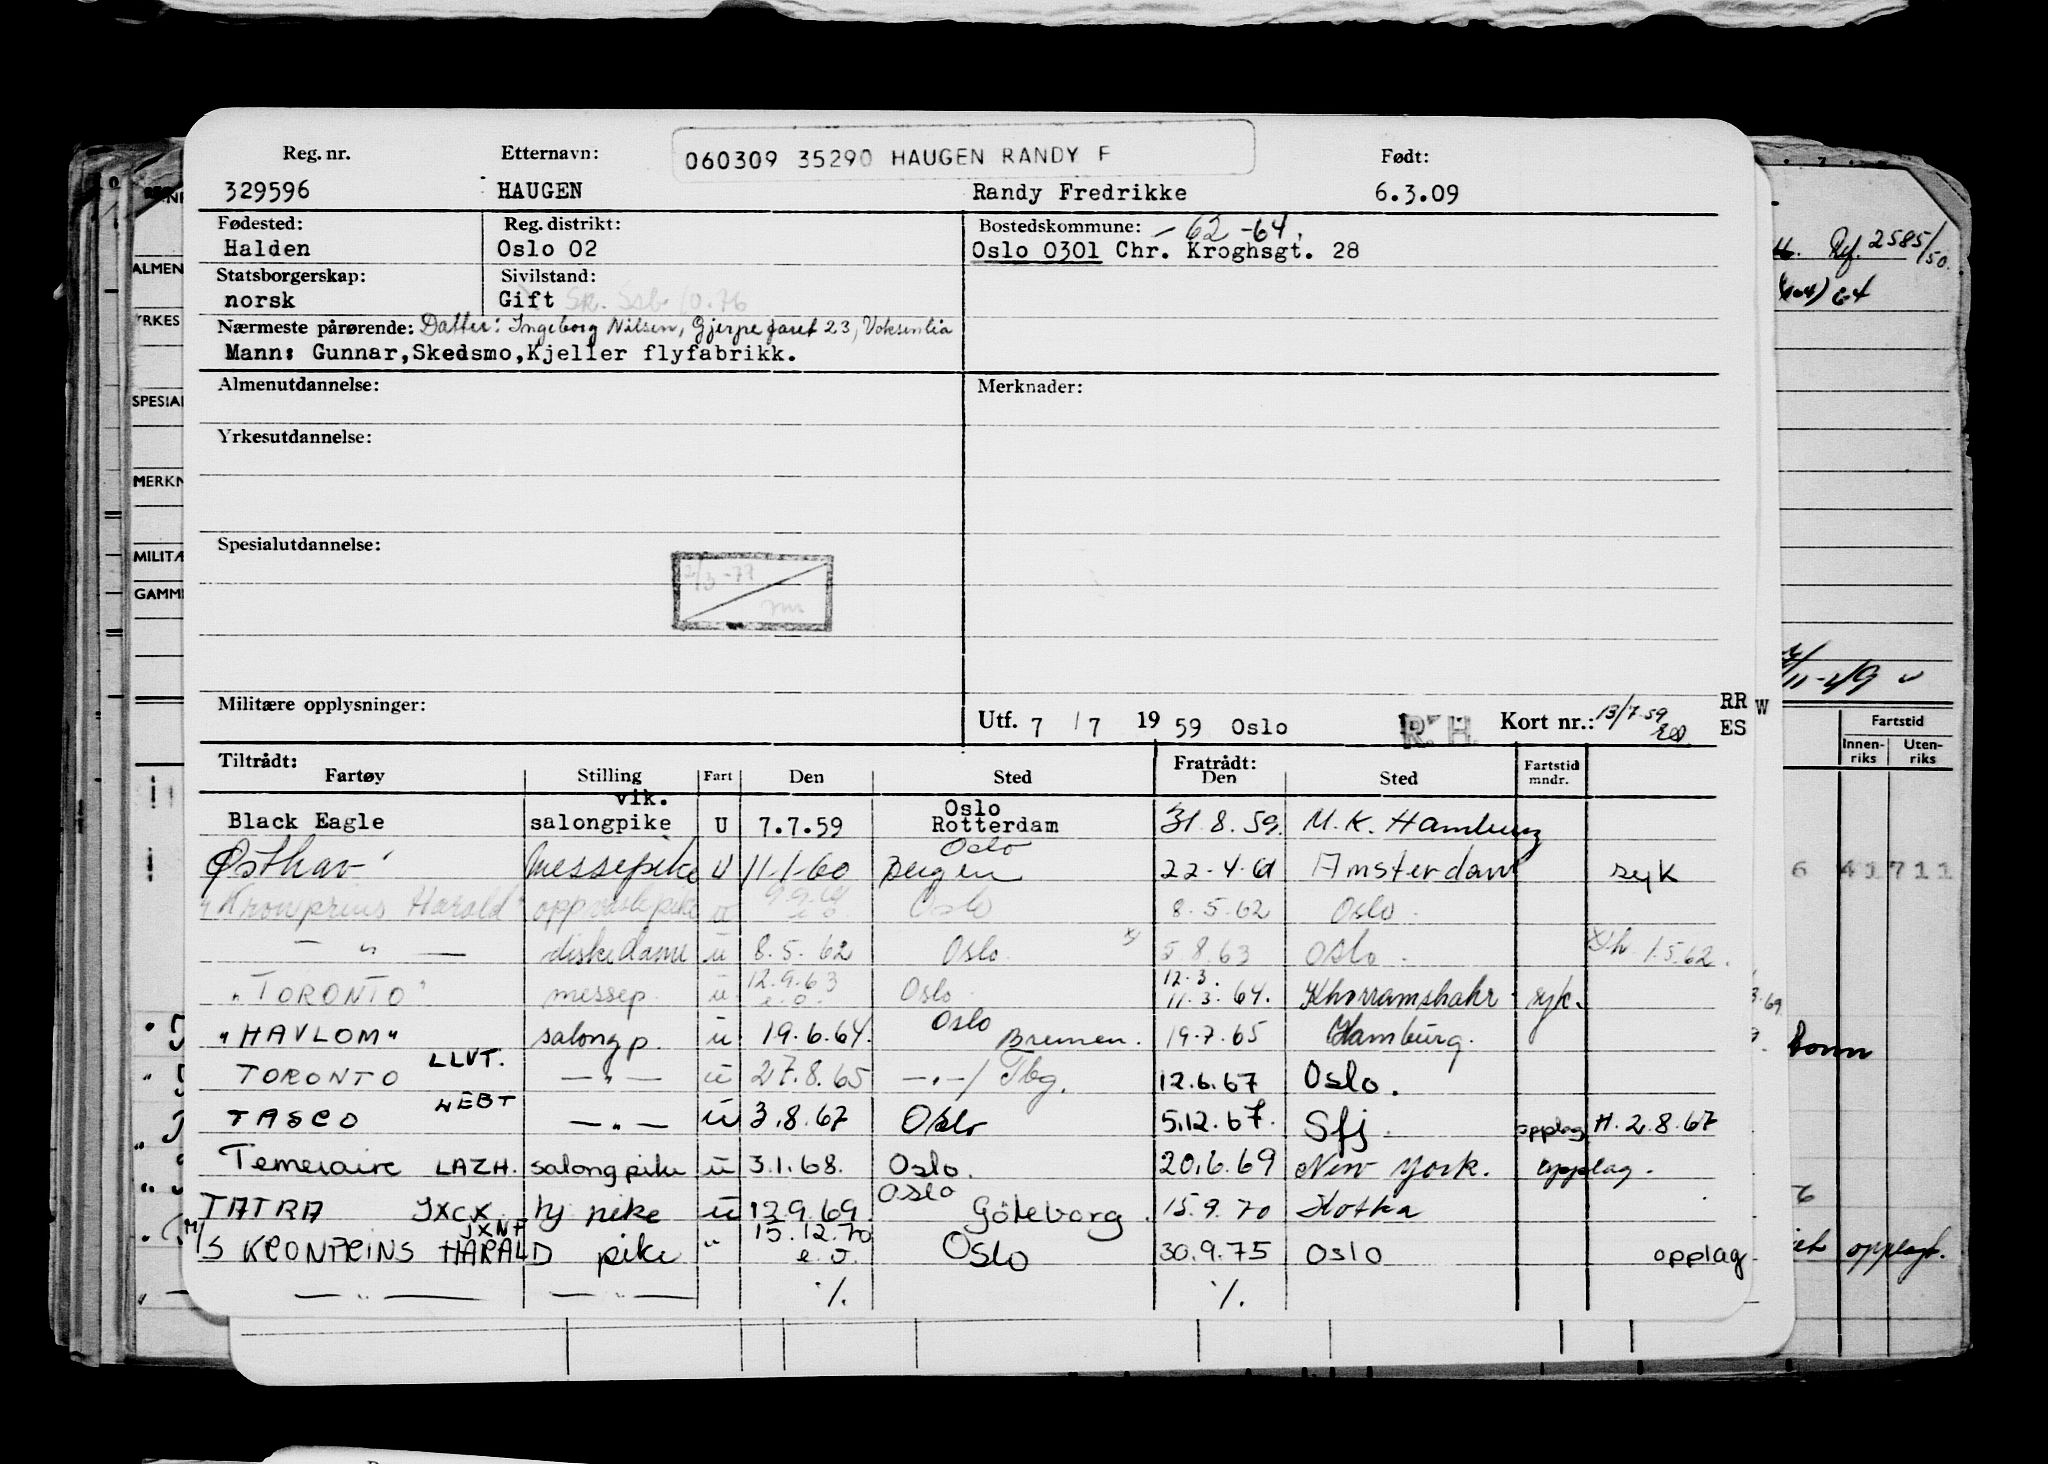 Reg. nr. Etternavn: 060309 35290 HAUGEN RANDY F Født:
329596 HAUGEN Randy Fredrikke 6.3.09
Fødested: Reg. distrikt: Bostedskommune: -62 -64.
Halden Oslo 02 Oslo 0301 Chr. Kroghsgt. 28
Statsborgerskap: Sivilstand:
norsk Gift
Nærmeste pårørende: Datter: Ingeborg Nilsen, Gjerpefaret 23, Voksenlia
Mann: Gunnar,Skedsmo,Kjeller flyfabrikk.
Almenutdannelse: Merknader:
Yrkesutdannelse:
Spesialutdannelse:
2/3-77
Militære opplysninger: Utf. 7 / 7 19 59 Oslo R. H. Kort nr.: 13/7.59 RR W
ES
Tiltrådt: Fratrådt:
Fartøy Stilling Fart Den Sted Den Sted Fartstid mndr.
Black Eagle vik. salongpike U 7.7.59 Oslo Rotterdam 31.8.59. M.K. Hamburg
Østhav messepike U 11-1-60 Oslo Bergen 22-4-61 Amsterdam syk
"Kronprins Harald" oppvaskpike u Oslo 8.5.62 Oslo.
— " — diskedame u 8.5.62 Oslo 5.8.63 Oslo. 1.5.62.
"TORONTO" messep. u 12.9.63 e.o. Oslo 12.3. 11.3.64. Khorramshahr syk.
"HAVLOM" salongp. u 19.6.64. Oslo Bremen. 19.7.65 Hamburg.
TORONTO LLVT. — " — u 27.8.65 — " —/ Tbg. 12.6.67 Oslo.
TASCO — " — u 3.8.67 Oslo 5.12.67. Sfj. opplag H. 2.8.67
Temeraire LAZH. salongpike u 3.1.68. Oslo. 20.6.69 New York. opplag.
TATRA JXCX pike u 12.9.69. Oslo Göteborg. 15.9.70 Kotka
M/S KRONPRINS HARALD JXNF pike " 15.12.70 e.o. Oslo 30.9.75 Oslo opplag
— " — — " — ./. ./.
ALMEN
YRKES
SPESIAL
MERKN
MILITÆ
GAMME
Ref. 2585/50.
64
11-49
Fartstid
Innen-riks Uten-riks
6 41 7 11
opplagt.